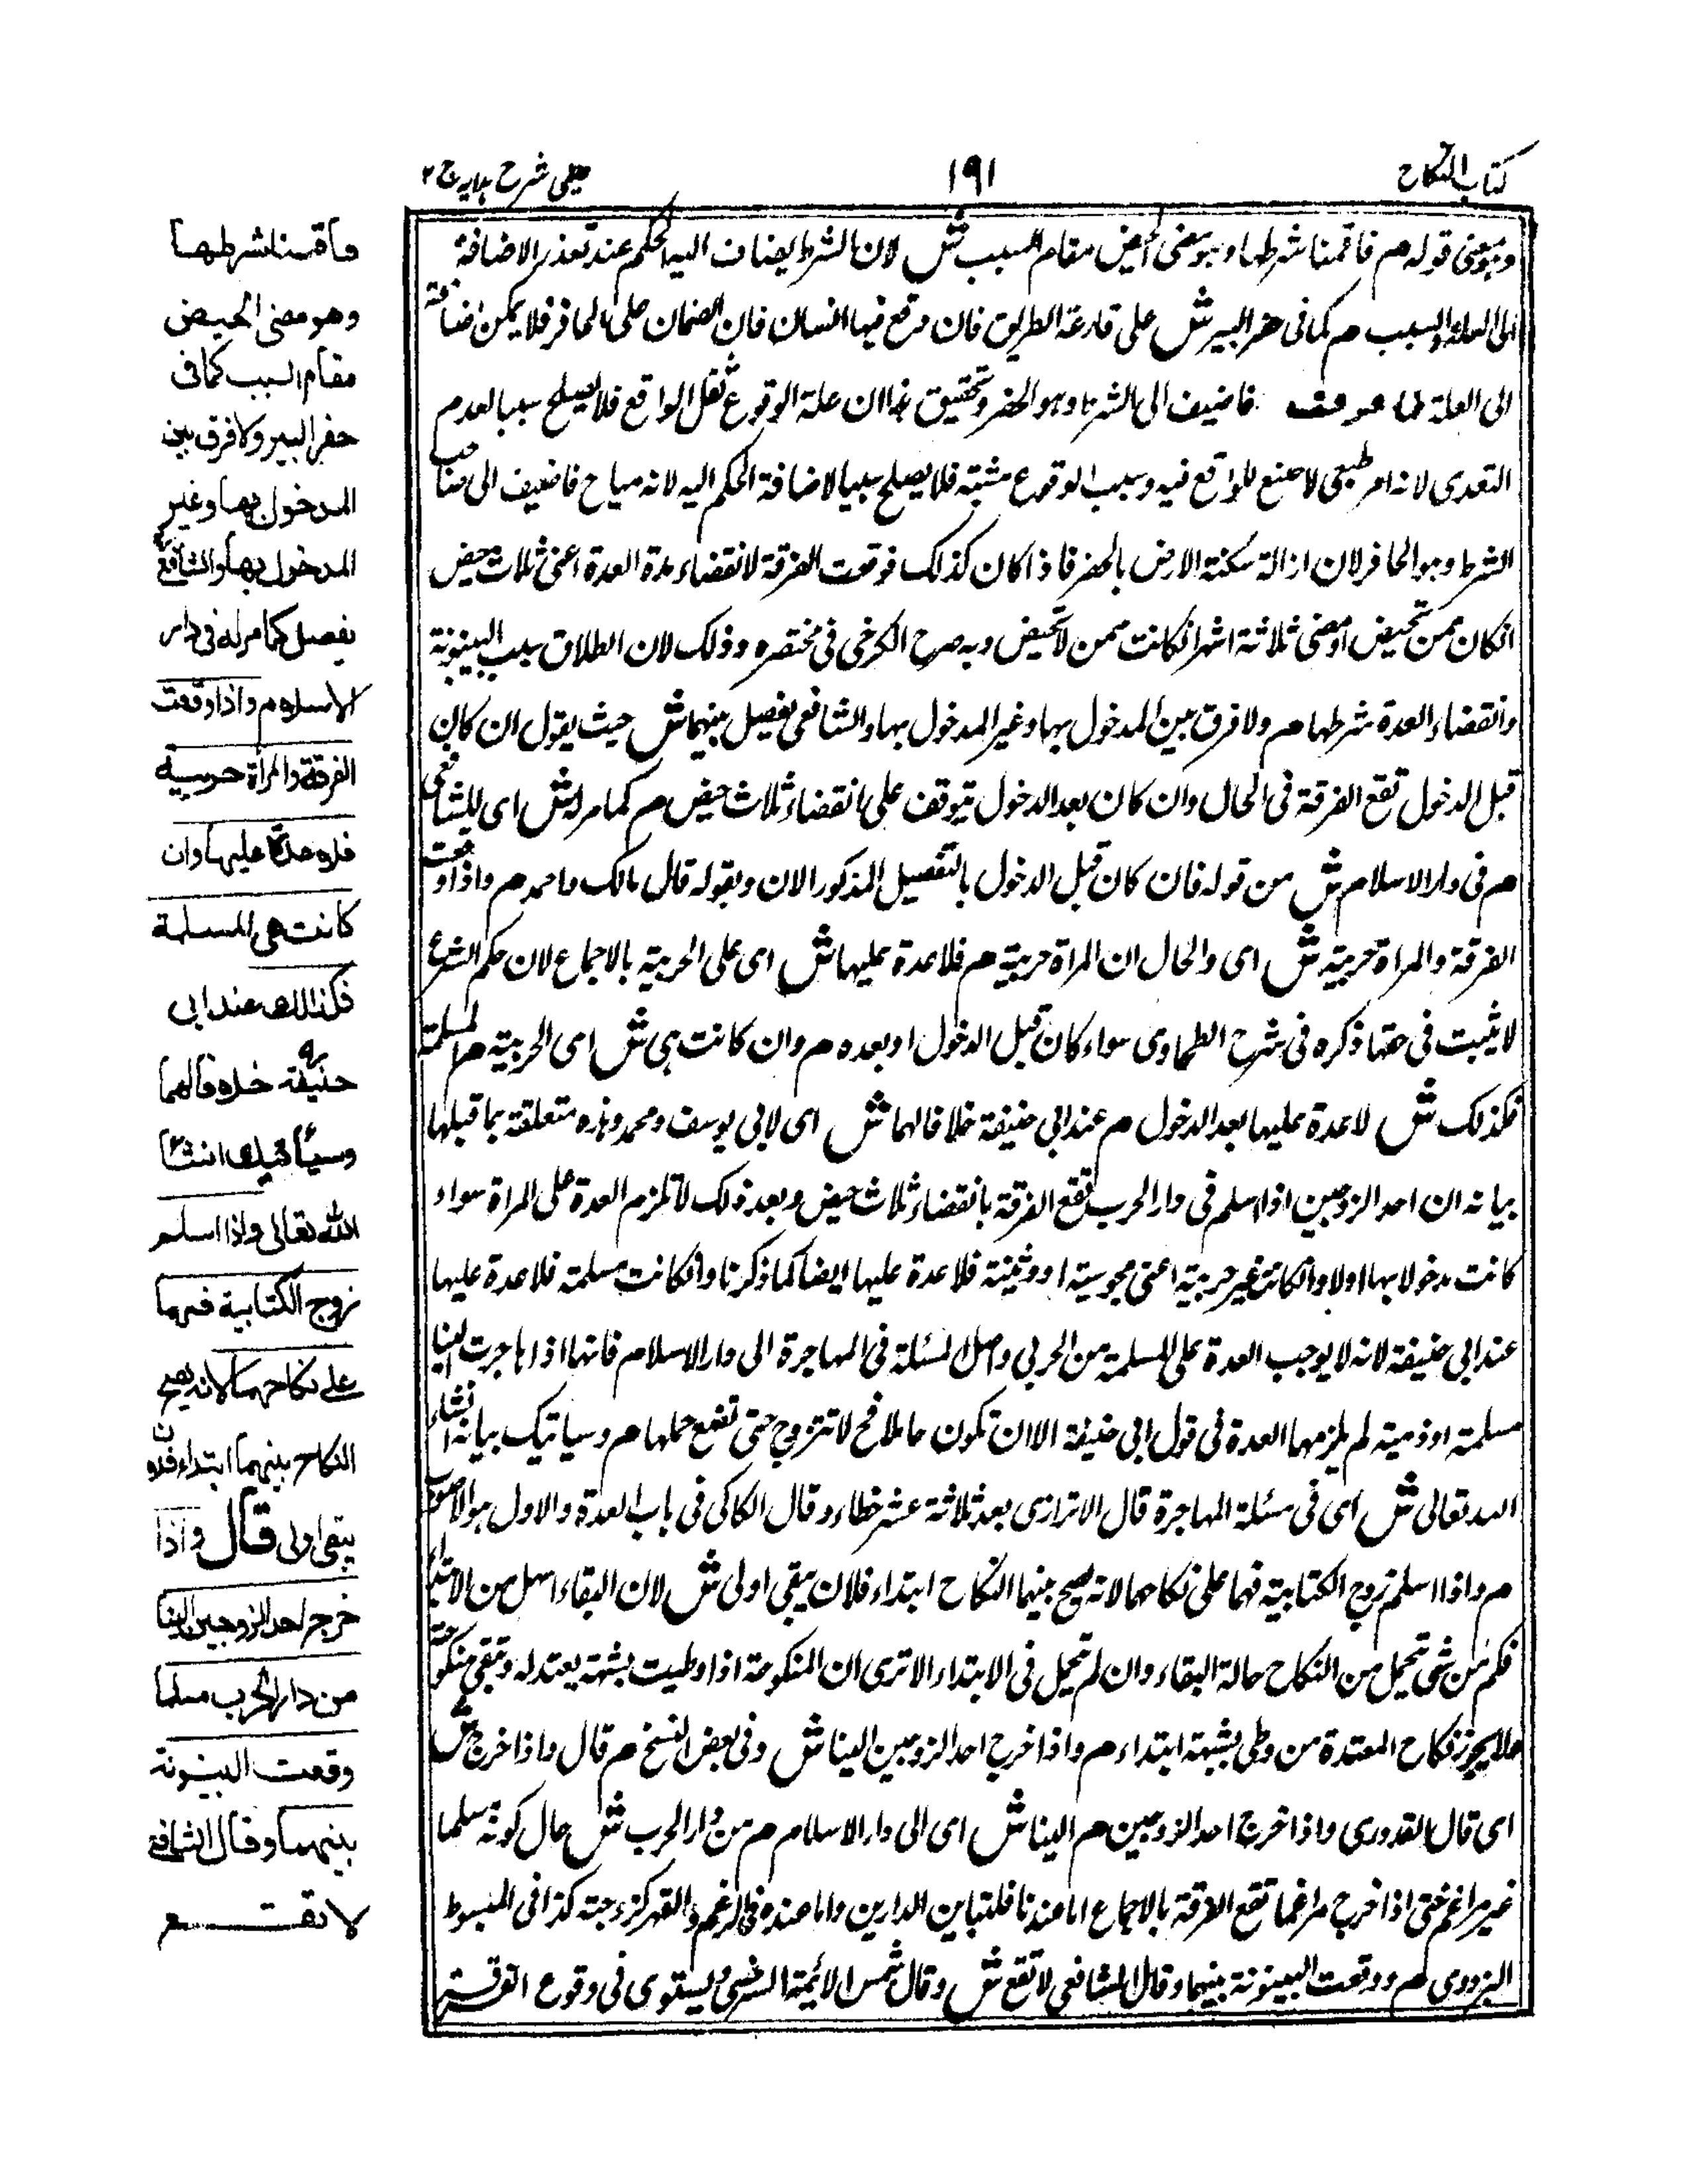 كتاب النكاح
١٩١
عيني شرح هدايه ج ٢
وهو معنى قوله م فاقمنا شرطها وهو مضى الحيض مقام السبب ش لان الشرط يضاف اليه الحكم عند تعذر الاضافة
الى العلة والسبب م كما فى حفر البير ش على قارعة الطريق فان وقع فيها انسان فان الضمان على الحافر فلا يمكن اضافته
الى العلة لما عرف فاضيف الى الشرط وهو الحفر وتحقيق هذا ان علة الوقوع ثقل الواقع فلا يصلح سببا لعدم
التعدى لانه امر طبعى لا صنع للواقع فيه وسبب الوقوع مشيته فلا يصلح سببا لاضافة الحكم اليه لانه مباح فاضيف الى صاحب
الشرط وهو الحافر لان ازالة سكنة الارض بالحفر فاذا كان كذلك فوقعت الفرقة لانقضاء مدة العدة اعنى ثلاث حيض
انكان ممن تحيض او مضى ثلاثة اشهر انكانت ممن لا تحيض وبه صرح الكرخى فى مختصره وذلك لان الطلاق سبب البينونة
وانقضاء العدة شرطها م ولا فرق بين المدخول بها وغير المدخول بها والشافعى يفصل بينهما ش حيث يقول ان كان
قبل الدخول تقع الفرقة فى الحال وان كان بعد الدخول تتوقف على انقضاء ثلاث حيض م كما مر له ش اى للشافعى
م فى دار الاسلام ش من قوله فان كان قبل الدخول بالتفصيل المذكور الان وبقوله قال مالك واحمد م واذا وقعت
الفرقة والمراة حربية ش اى والحال ان المراة حربية م فلا عدة عليها ش اى على الحربية بالاجماع لان حكم الشرع
لا يثبت فى حقها ذكره فى شرح الطحاوى سواء كان قبل الدخول او بعده م وان كانت هى ش اى الحربية م المسلمة
فكذلك ش لا عدة عليها بعد الدخول م عند ابى حنيفة خلافا لهما ش اى لابى يوسف ومحمد وهذه متعلقة بما قبلها
بيانه ان احد الزوجين اذا اسلم فى دار الحرب تقع الفرقة بانقضاء ثلاث حيض وبعد ذلك لا تلزم العدة على المراة سواء
كانت مدخولا بها او لا وانكانت غير حربية اعنى مجوسية او وثنية فلا عدة عليها ايضا كما ذكرنا وانكانت مسلمة فلا عدة عليها
عند ابى حنيفة لانه لا يوجب العدة على المسلمة من الحربى واصل المسئلة فى المهاجرة الى دار الاسلام فانها اذا هاجرت الينا
مسلمة او ذمية لم يلزمها العدة فى قول ابى حنيفة الا ان تكون حاملا فح لا تتزوج حتى تضع حملها م وسياتيك بيانه انشاء
الله تعالى ش اى فى مسئلة المهاجرة قال الاترازى بعد ثلاثة عشر خطا وقال الكاكى فى باب العدة والاول هو الاصوب
م واذا اسلم زوج الكتابية فهما على نكاحهما لانه يصح بينهما النكاح ابتداء فلان يبقى اولى ش لان البقاء اسهل من الابتداء
فكم من شى يتحمل من النكاح حالة البقاء وان لم يتحمل فى الابتداء الا ترى ان المنكوحة اذا وطيت بشبهة يعتد له وتبقى منكوحة
ولا يجوز نكاح المعتدة من وطى بشبهة ابتداء م واذا خرج احد الزوجين الينا ش وفى بعض النسخ م قال واذا خرج ش
اى قال القدورى واذا خرج احد الزوجين م الينا ش اى الى دار الاسلام م من دار الحرب ش حال كونه مسلما
غير مراغم حتى اذا خرج مراغما تقع الفرقة بالاجماع اما عندنا فلتباين الدارين واما عنده فللرغم والقهر كزوجته كذا فى المبسوط
البزدوى م ووقعت البينونة بينهما وقال الشافعى لا تقع ش وقال شمس الائمة السرخسى ويستوى فى وقوع الفرقة
فأقمنا شرطها
وهو مضى الحيض
مقام السبب كما فى
حفر البير ولا فرق بين
المدخول بها وغير
المدخول بها والشافعى
يفصل كما مر له فى دار
الاسلام واذا وقعت
الفرقة والمرأة حربية
فلا عدة عليها وان
كانت هى المسلمة
فكذالك عند ابى
حنيفة خلافا لهما
وسيأتيك انشاء
الله تعالى واذا اسلم
زوج الكتابية فهما
على نكاحهما لانه يصح
النكاح بينهما ابتداء فلان
يبقى اولى قال واذا
خرج احد الزوجين الينا
من دار الحرب مسلما
وقعت البينونة
بينهما وقال الشافعى
لا تقع